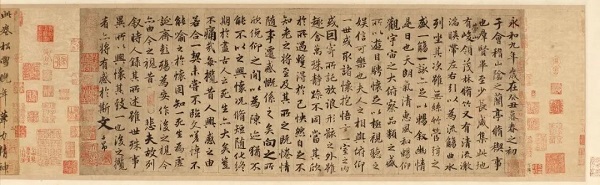 永和九年歲在癸丑暮春之初
于會稽山陰之蘭亭脩禊事
也羣賢畢至少長咸集此地
有峻領茂林脩竹又有清流激
湍暎帶左右引以為流觴曲水
列坐其次雖無絲竹管弦之
盛一觴一詠亦足以暢敘幽情
是日也天朗氣清惠風和暢仰
觀宇宙之大俯察品類之盛
所以遊目騁懷足以極視聽之
娛信可樂也夫人之相與俯仰
一世或取諸懷抱悟言一室之內
或因寄所託放浪形骸之外雖
趣舍萬殊靜躁不同當其欣
於所遇暫得於己怏然自足不
知老之將至及其所之既惓情
隨事遷感慨係之矣向之所
欣俛仰之間以為陳迹猶不
能不以之興懷況脩短隨化終
期於盡古人云死生亦大矣豈
不痛哉每攬昔人興感之由
若合一契未嘗不臨文嗟悼不
能喻之於懷固知一死生為虛
誕齊彭殤為妄作後之視今
亦由今之視昔 悲夫故列
敘時人錄其所述雖世殊事
異所以興懷其致一也後之攬
者亦將有感於斯文
此卷松雪晚年筆力精神